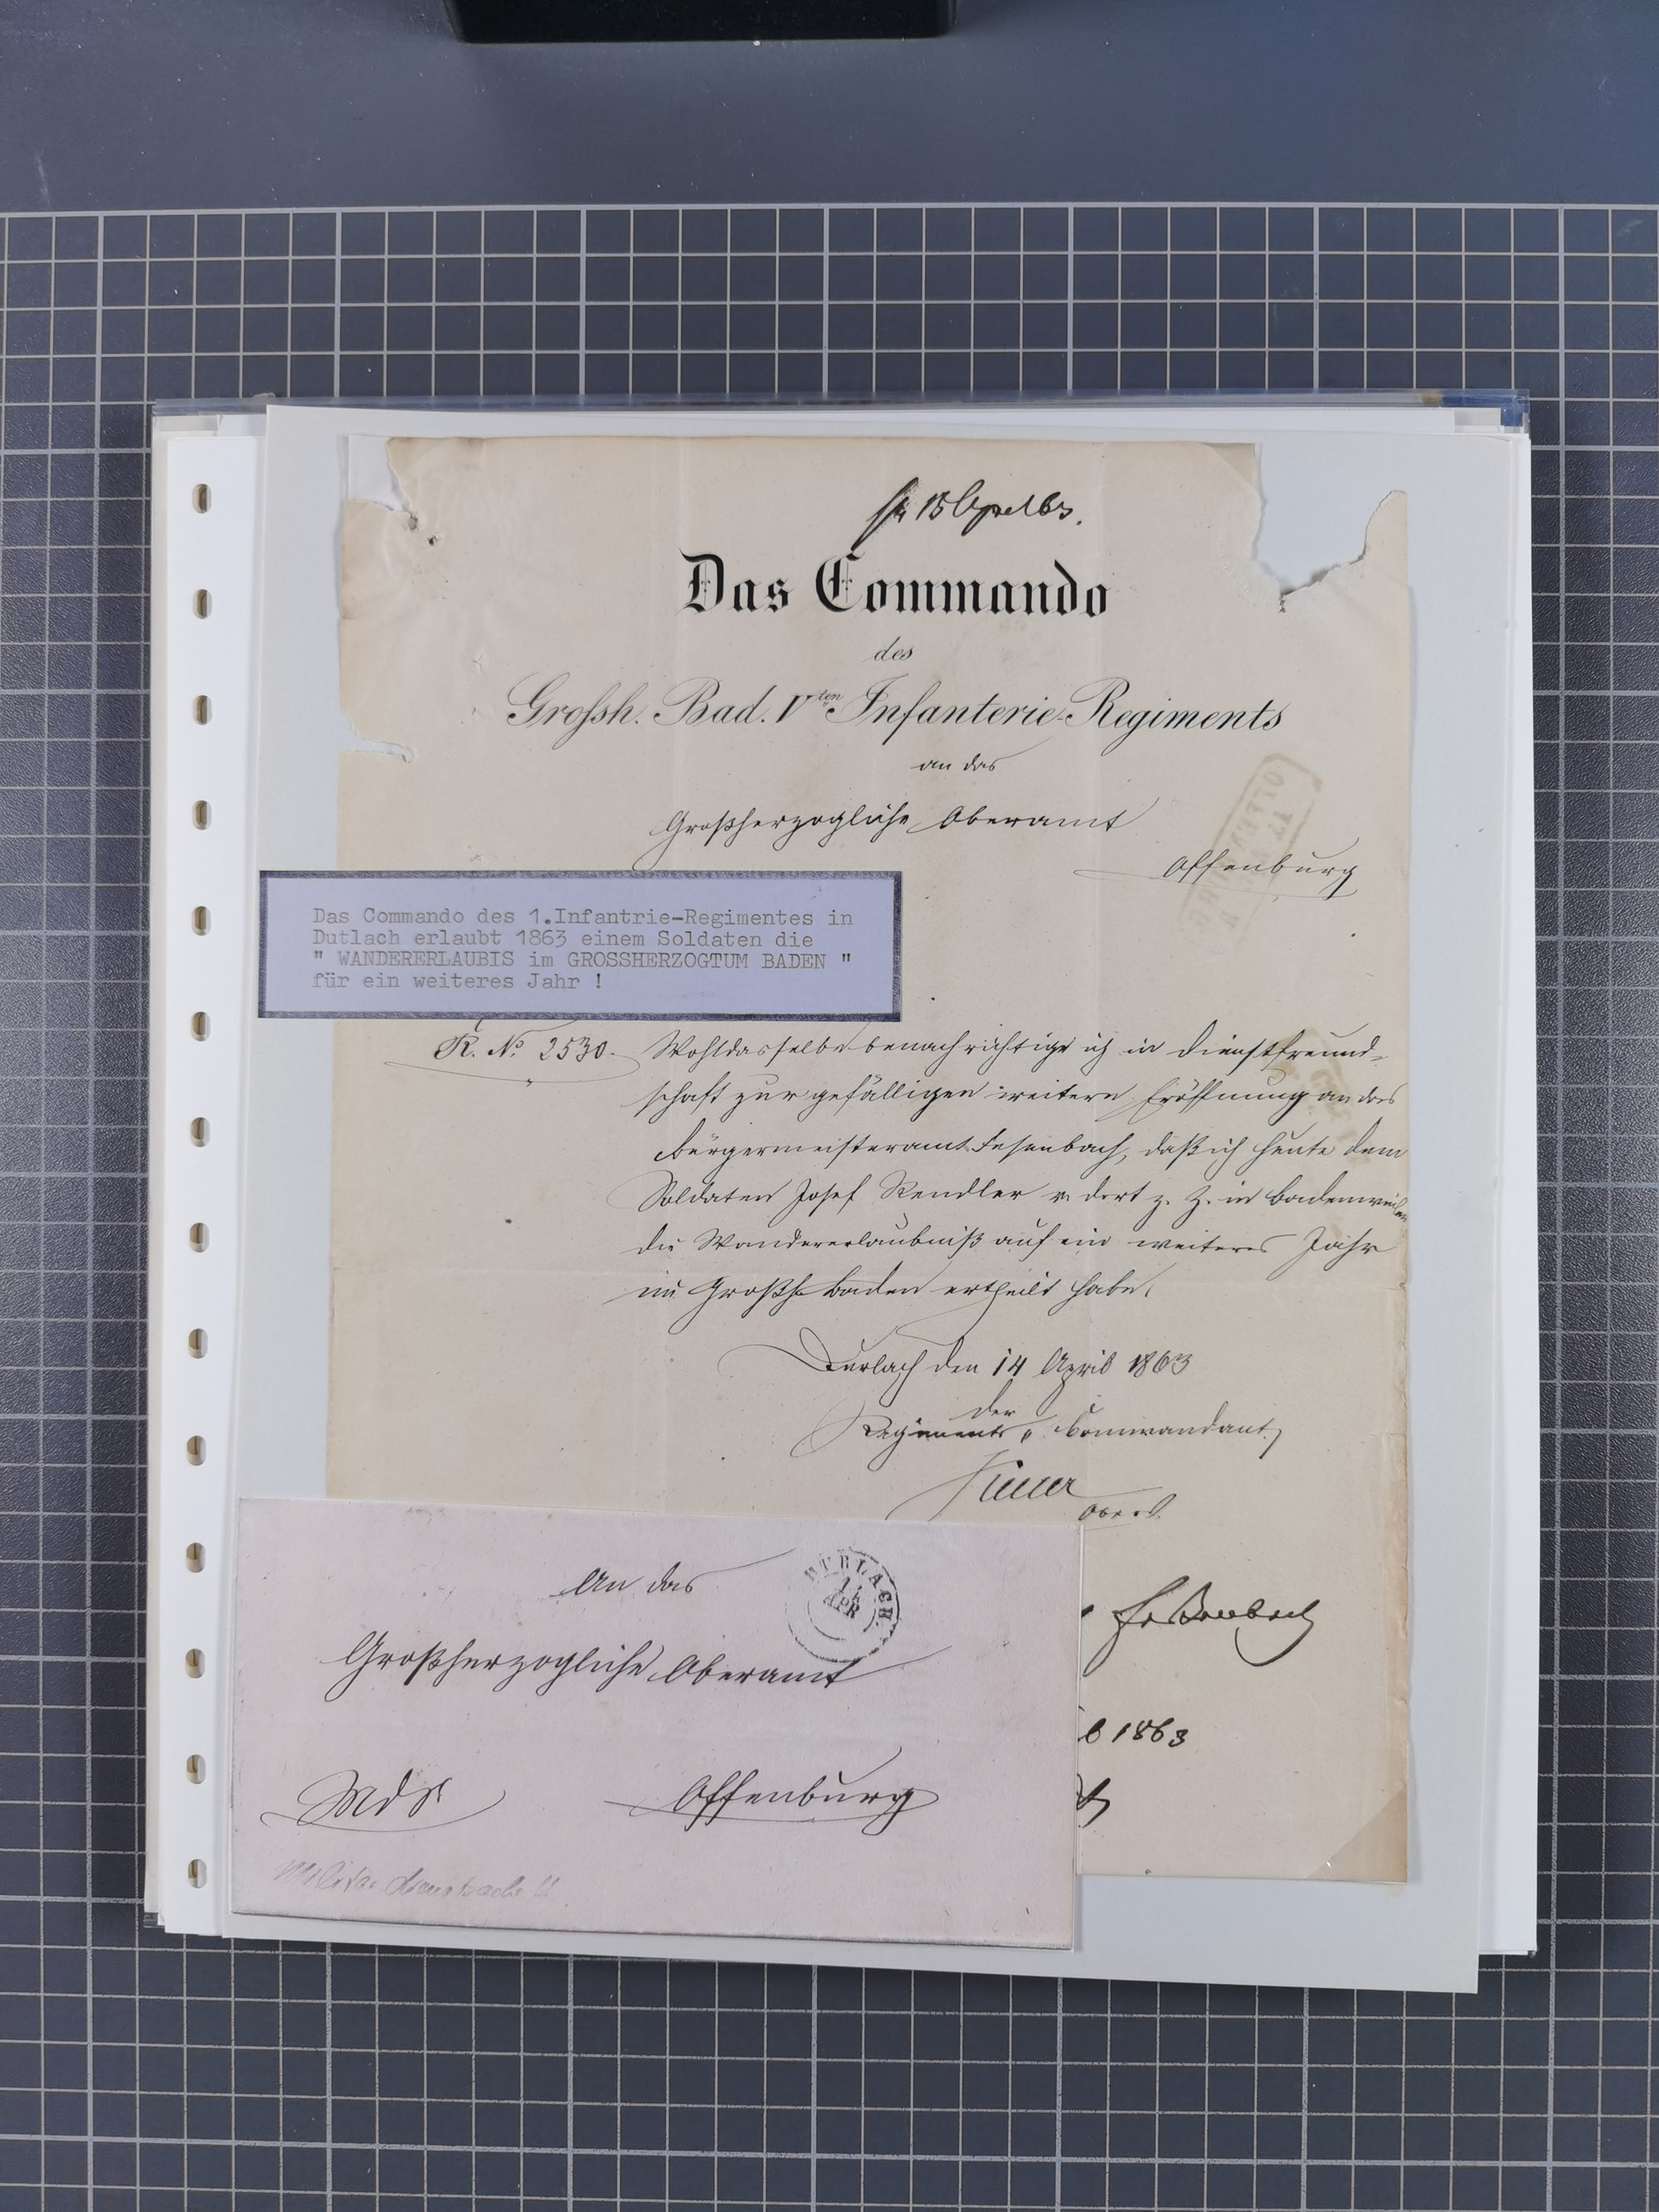 15 April 63.
Das Commando
des
Grossh. Bad. V ten Infanterie-Regiments
an das
Großherzogliche Oberamt
Offenburg
Das Commando des 1.Infantrie-Regimentes in
Dutlach erlaubt 1863 einem Soldaten die
" WANDERERLAUBIS im GROSSHERZOGTUM BADEN "
für ein weiteres Jahr !
R. No. 2530. Wohldasselbe benachrichtige ich in dienstfreund-
schaft zur gefälligen weitern Eröffnung an das
Bürgermeisteramt Fesenbach, daß ich heute dem
Soldaten Josef Rendler v. dort z. Z. in Badenweiler
die Wandererlaubniß auf ein weiteres Jahr
im Großh. Baden ertheilt habe.
Durlach den 14 April 1863
der
Regiments Commandant
Oberst
An das
DURLACH
14
APR
Großherzogliche Oberamt
MdS
Offenburg
Militär Dienstsache !!
1863